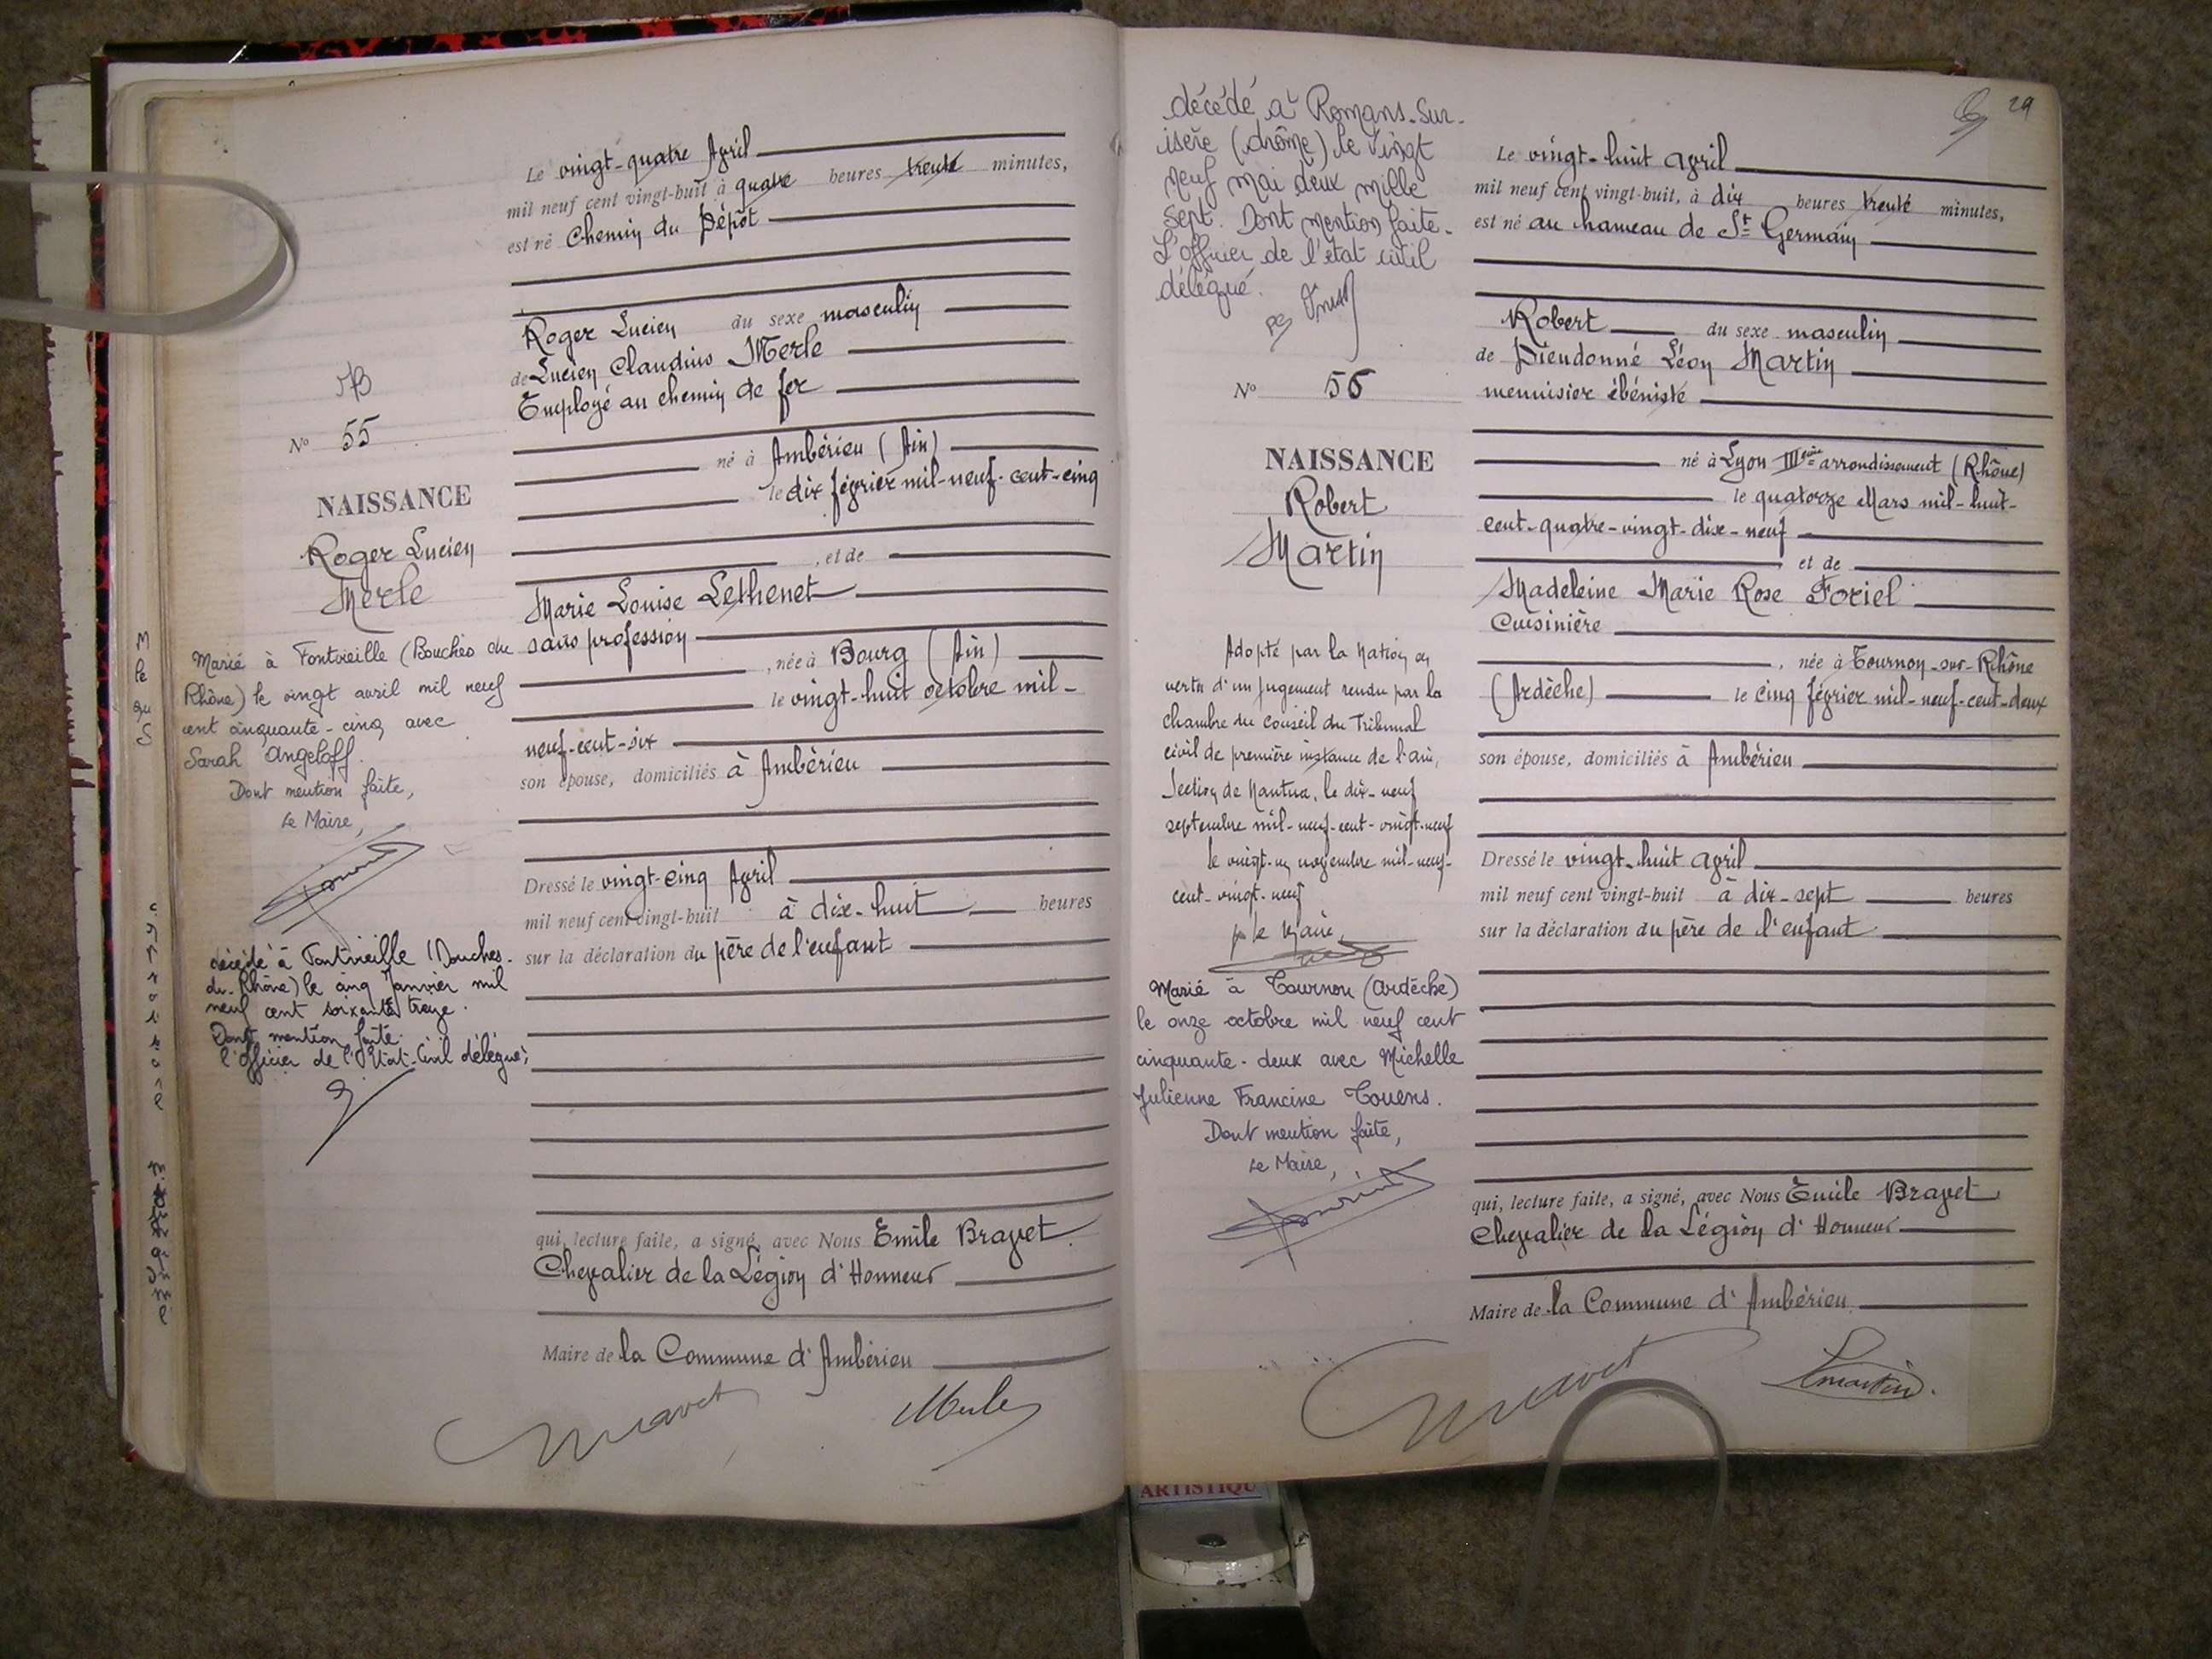 Le vingt-quatre Avril
mil neuf cent vingt-huit à quatre heures trente minutes,
est né Chemin du Dépôt
Roger Lucien du sexe masculin
de Lucien Claudius Merle
Employé au chemin de fer
né à Ambérieu (Ain)
le dix février mil-neuf-cent-cinq
, et de
Marie Louise Lethenet
sans profession
, née à Bourg (Ain)
le vingt-huit octobre mil-
neuf-cent-six
son épouse, domiciliés à Ambérieu
Dressé le vingt-cinq Avril
mil neuf cent vingt-huit à dix-huit heures
sur la déclaration du père de l'enfant
qui, lecture faite, a signé, avec Nous Emile Bravet
Chevalier de la Légion d'Honneur
Maire de la Commune d'Ambérieu
Bravet
Merle
No 55
NAISSANCE
Roger Lucien
Merle
Marié à Fontvieille (Bouches du
Rhône) le vingt avril mil neuf
cent cinquante-cinq avec
Sarah Angeloff.
Dont mention faite,
Le Maire,
décédé à Fontvieille (Bouches-
du-Rhône) le cinq Janvier mil
neuf cent soixante treize.
Dont mention faite.
l'Officier de l'Etat-Civil délégué,
29
décédé à Romans-Sur-
isère (drôme) le vingt
neuf mai deux mille
sept. Dont mention faite.
L'officier de l'état civil
délégué.
No 56
NAISSANCE
Robert
Martin
Adopté par la Nation en
vertu d'un jugement rendu par la
chambre du Conseil du Tribunal
civil de première instance de l'ain,
Section de Nantua, le dix-neuf
septembre mil-neuf-cent-vingt-neuf
le vingt-un novembre mil-neuf-
cent-vingt-neuf
p le Maire,
Marié à Tournon (Ardèche)
le onze octobre mil neuf cent
cinquante-deux avec Michelle
Julienne Francine Touens.
Dont mention faite,
Le Maire,
Le vingt-huit avril
mil neuf cent vingt-huit, à dix heures trente minutes,
est né au hameau de St Germain
Robert du sexe masculin
de Dieudonné Léon Martin
menuisier ébéniste
né à Lyon IIIème arrondissement (Rhône)
le quatorze Mars mil-huit-
cent-quatre-vingt-dix-neuf
et de
Madeleine Marie Rose Foriel
Cuisinière
, née à Tournon-sur-Rhône
(Ardèche) le cinq février mil-neuf-cent-deux
son épouse, domiciliés à Ambérieu
Dressé le vingt-huit avril
mil neuf cent vingt-huit à dix-sept heures
sur la déclaration du père de l'enfant
qui, lecture faite, a signé, avec Nous Emile Bravet
Chevalier de la Légion d'Honneur
Maire de la Commune d'Ambérieu
Bravet
Lmartin.
ARTISTIQU